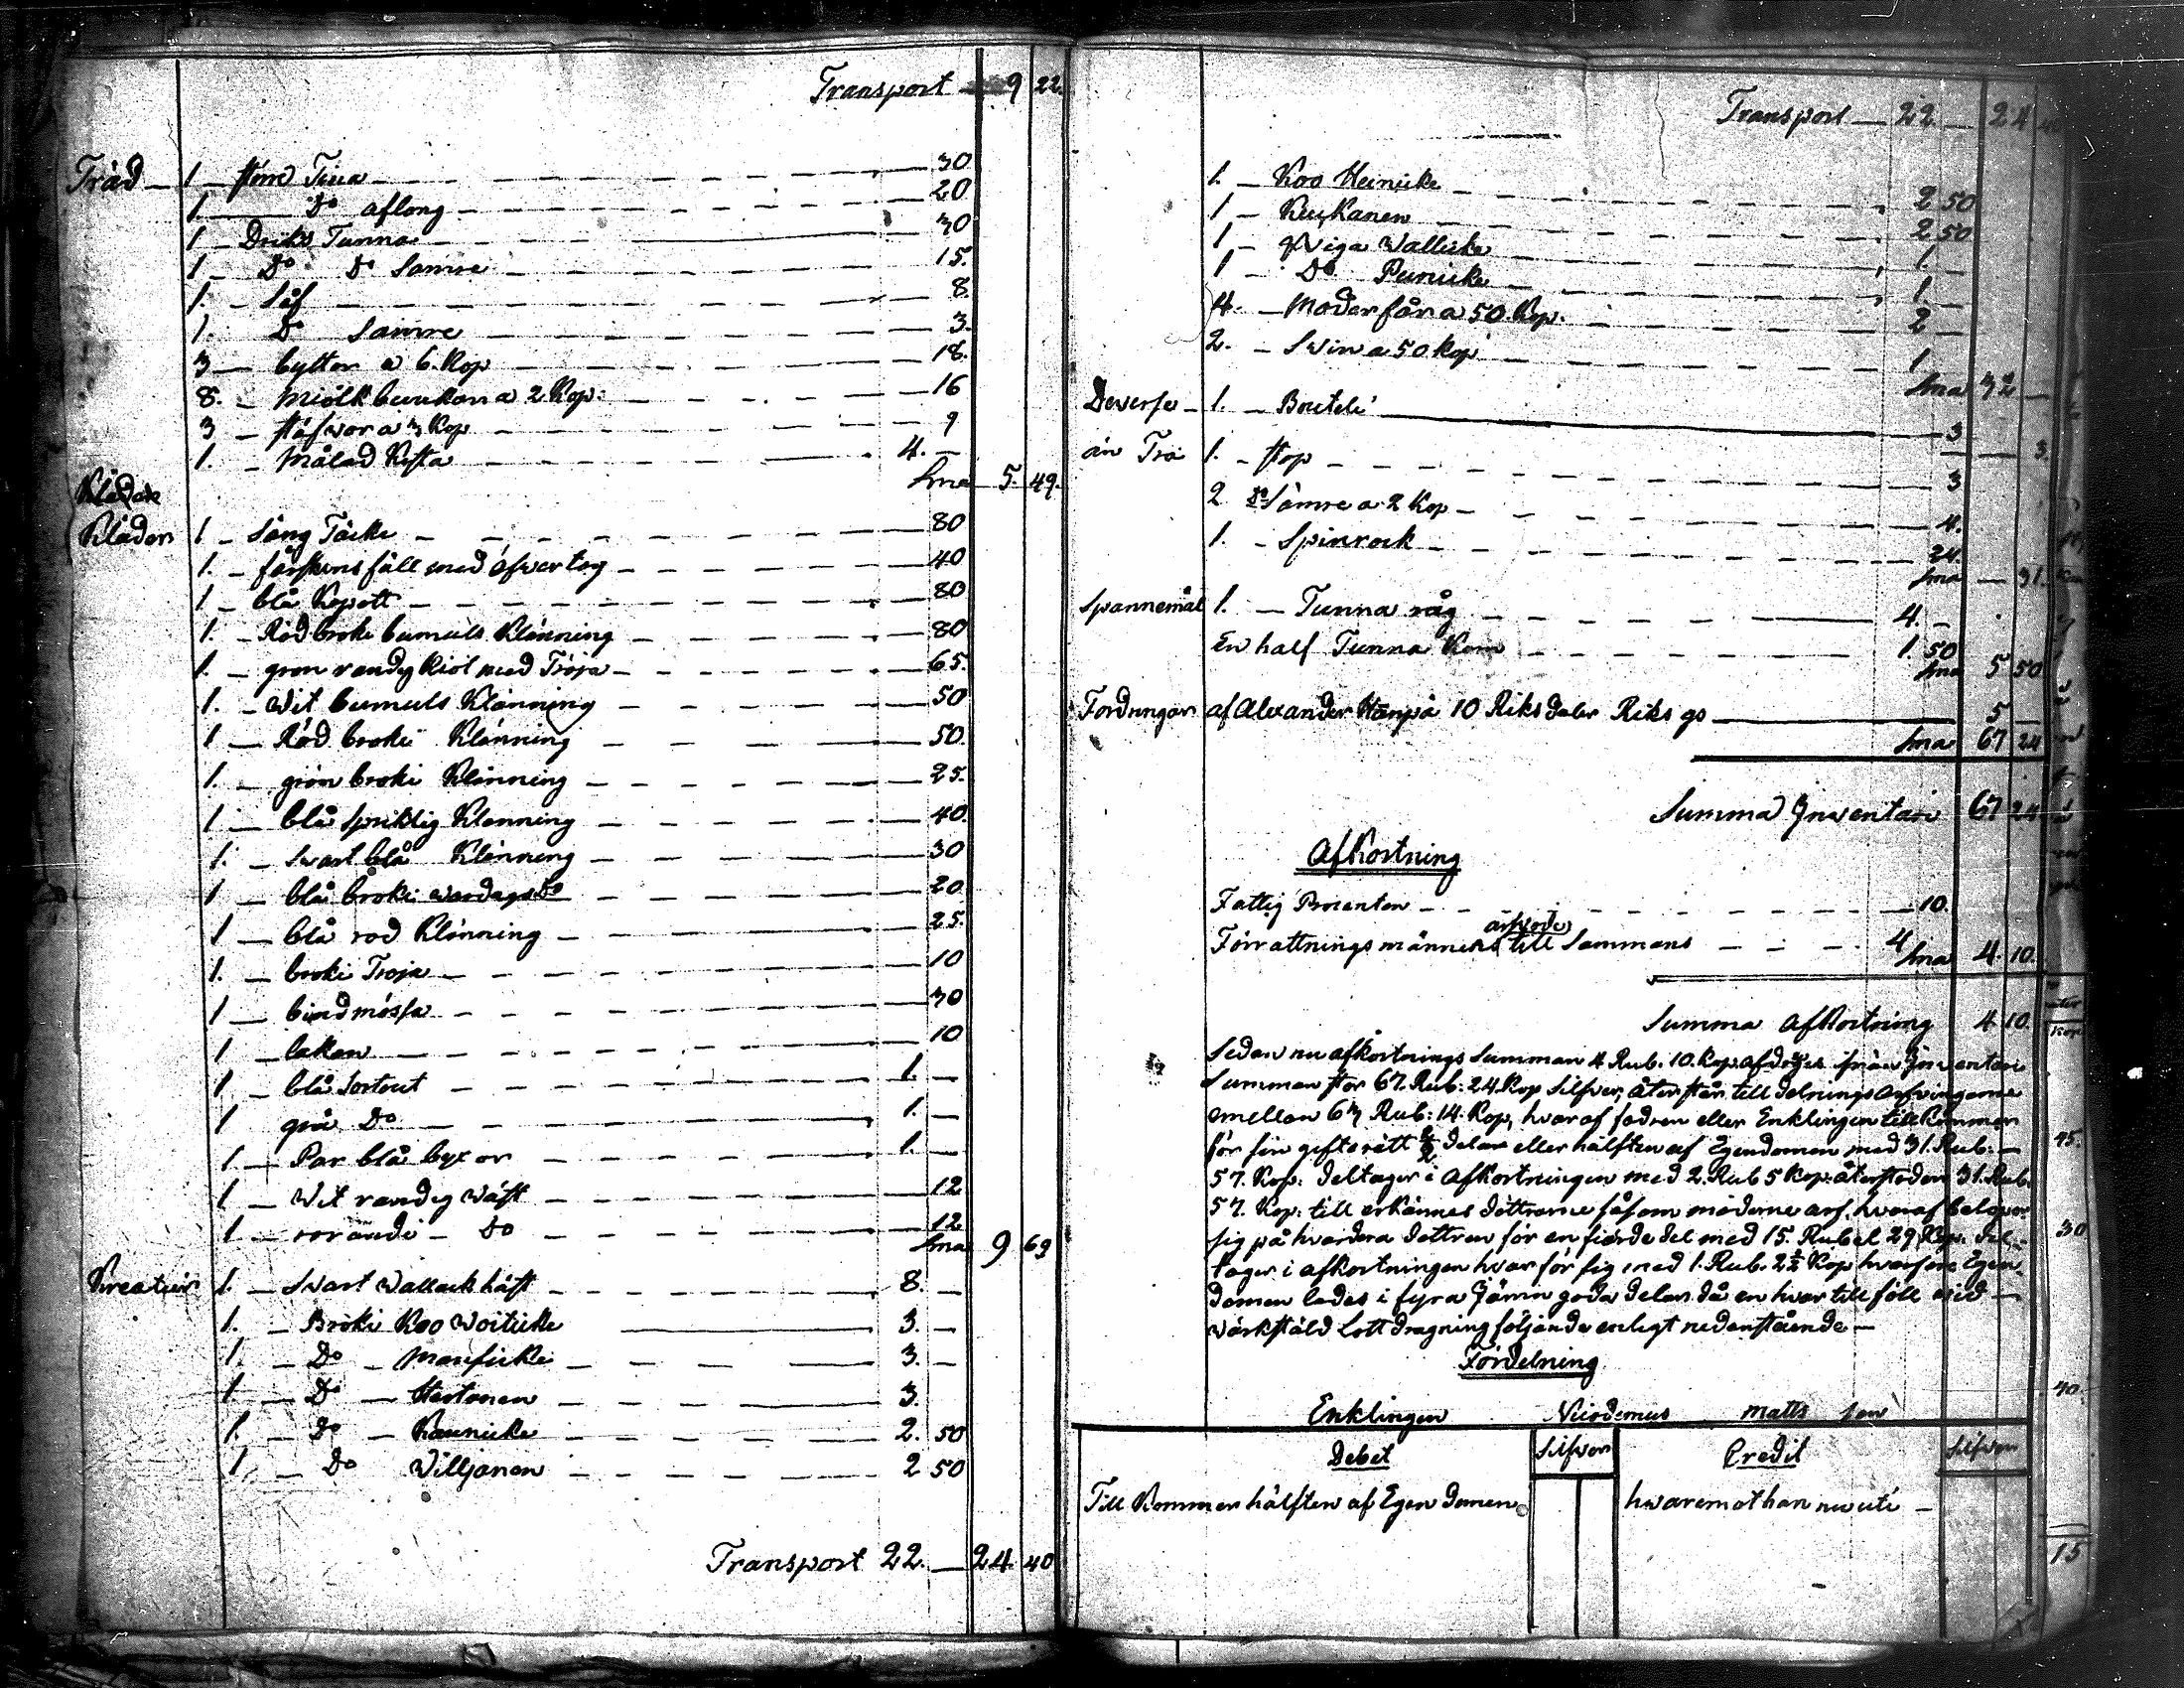 Transport 9 22.
Träd 1 större Tina 30
1 Do aflång 20
1 Driks Tunna 30
1 Do Do Sämre 15.
1. Såf 8.
1. Do Sämre 3.
3 byttor a 6. Kop 18.
8. Miölk bunkar a 2 Kop: 16
3 ståfwor a 3 Kop 9
1. Målad Kista 4. —
Sma 5. 49.
Kläder 1 Säng Täcke 80
1. fårskinsfäll med öfwertog 40
1 blå Kapott 80
1. Röd broki bumuls Klänning 80
1. grön randig Kiol med Tröja 65.
1. Wit bumuls Klänning 50
1 Röd broki Klänning 50.
1. grön broki Klänning 25.
1 blå spriklig Klänning 40.
1. Swart blå Klänning 30
1 blå broki wardags Do 20
1 blå röd Klänning 25.
1. broki Tröja 10
1 bindmössa 30
1 lakan 10
1 blå Sortout 1. —
1 grå Do 1. —
1 Par blå byxor 1. —
1 Wit randig Wäst 12
1 rorandi Do 12
Sma 9 69
Kreatur 1. Swart Wallack häst 8. —
1. Broki Koo Woiticke 3. —
1. Do Mansicke 3. —
1 Do Hertonen 3.
1. Do Kaunicke 2. 50
1 Do Willjanen 2 50
Transport 22. — 24. 40
Transport 22 — 24 40
1. Koo Heinicke 2 50
1 Kuikanen 2 50
1 qwiga Wallicke 1. —
1 Do Punicke 1. —
4. Moderfår a 50. Kop. 2 —
2. Swin a 50 Kop 1
Sma 32 —
Deverse 1. Bouteli 3
— 3.
än Trä 1. Stop 3
2 Do Sämre a 2 Kop 4.
1. Spinrock 24.
Sma — 31.
Spannemål 1. Tunna råg 4. —
En half Tunna Korn 1. 50
Sma 5 50
Fordringar af Alexander Hanpä 10 Riksdaler Riks gs 5 —
Sma 67 24
Summa Inventari 67 24
Afkortning
Fattig Procenten 10.
arfvode
Förrattnings männens till Sammans 4
Sma 4. 10.
Summa Afkortning 4 10.
Sedan nu afkortnings Summan 4 Rub. 10. Kop. afdrges ifrån Inventari
Summan stor 67. Rub: 24 Kop Silfver, återstår till delnings Arfvingarne
emellan 63 Rub: 14 Kop, hvaraf fadren eller Enklingen tillkommer
för sin giftorätt 2/4 delar eller hälften af Egendomen med 31. Rub: —
57. Kop: deltager i Afkortningen med 2. Rub 5 Kop: återstoden 31. Rub.
57. Kop: till erkännes döttrarne såsom möderne arf, hvaraf belöper
sig på hvardera dottren för en fierdedel med 15. Rubel 29 Kop: del-
tager i afkortningen hvar för sig med 1. Rub. 2½ Kop hvarföre Egen-
domen lades i fyra Jämn goda delar då en hvar till föll wid —
wärkstäld Lottdragning följande enligt nedanstående —
Fördelning
Enklingen Nicodemus Matts son
Debet Silfver Credit Silfver
Till Kommer hälften af Egendomen hwaremot han nu uti —
45.
30
40
15